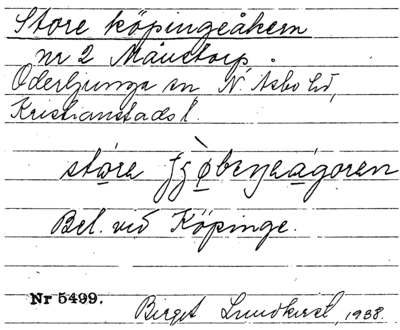 Store köpingeåkern
nr 2 Månstorp.
Oderljunga sn N. Asbo hd,
Kristianstads l.
stọra
Bel. vid Köpinge.
Nr 5499.
Birgit Lundkvist, 1938.